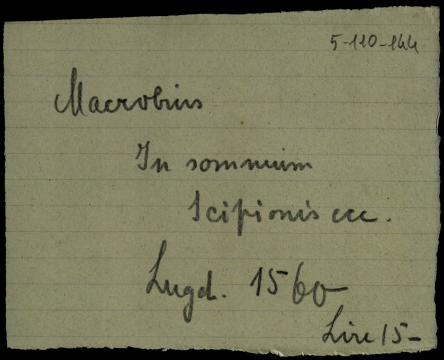 5-110-144
Macrobius
In somnium
Scipionis ecc.
Lugd. 1560
Lire 15-